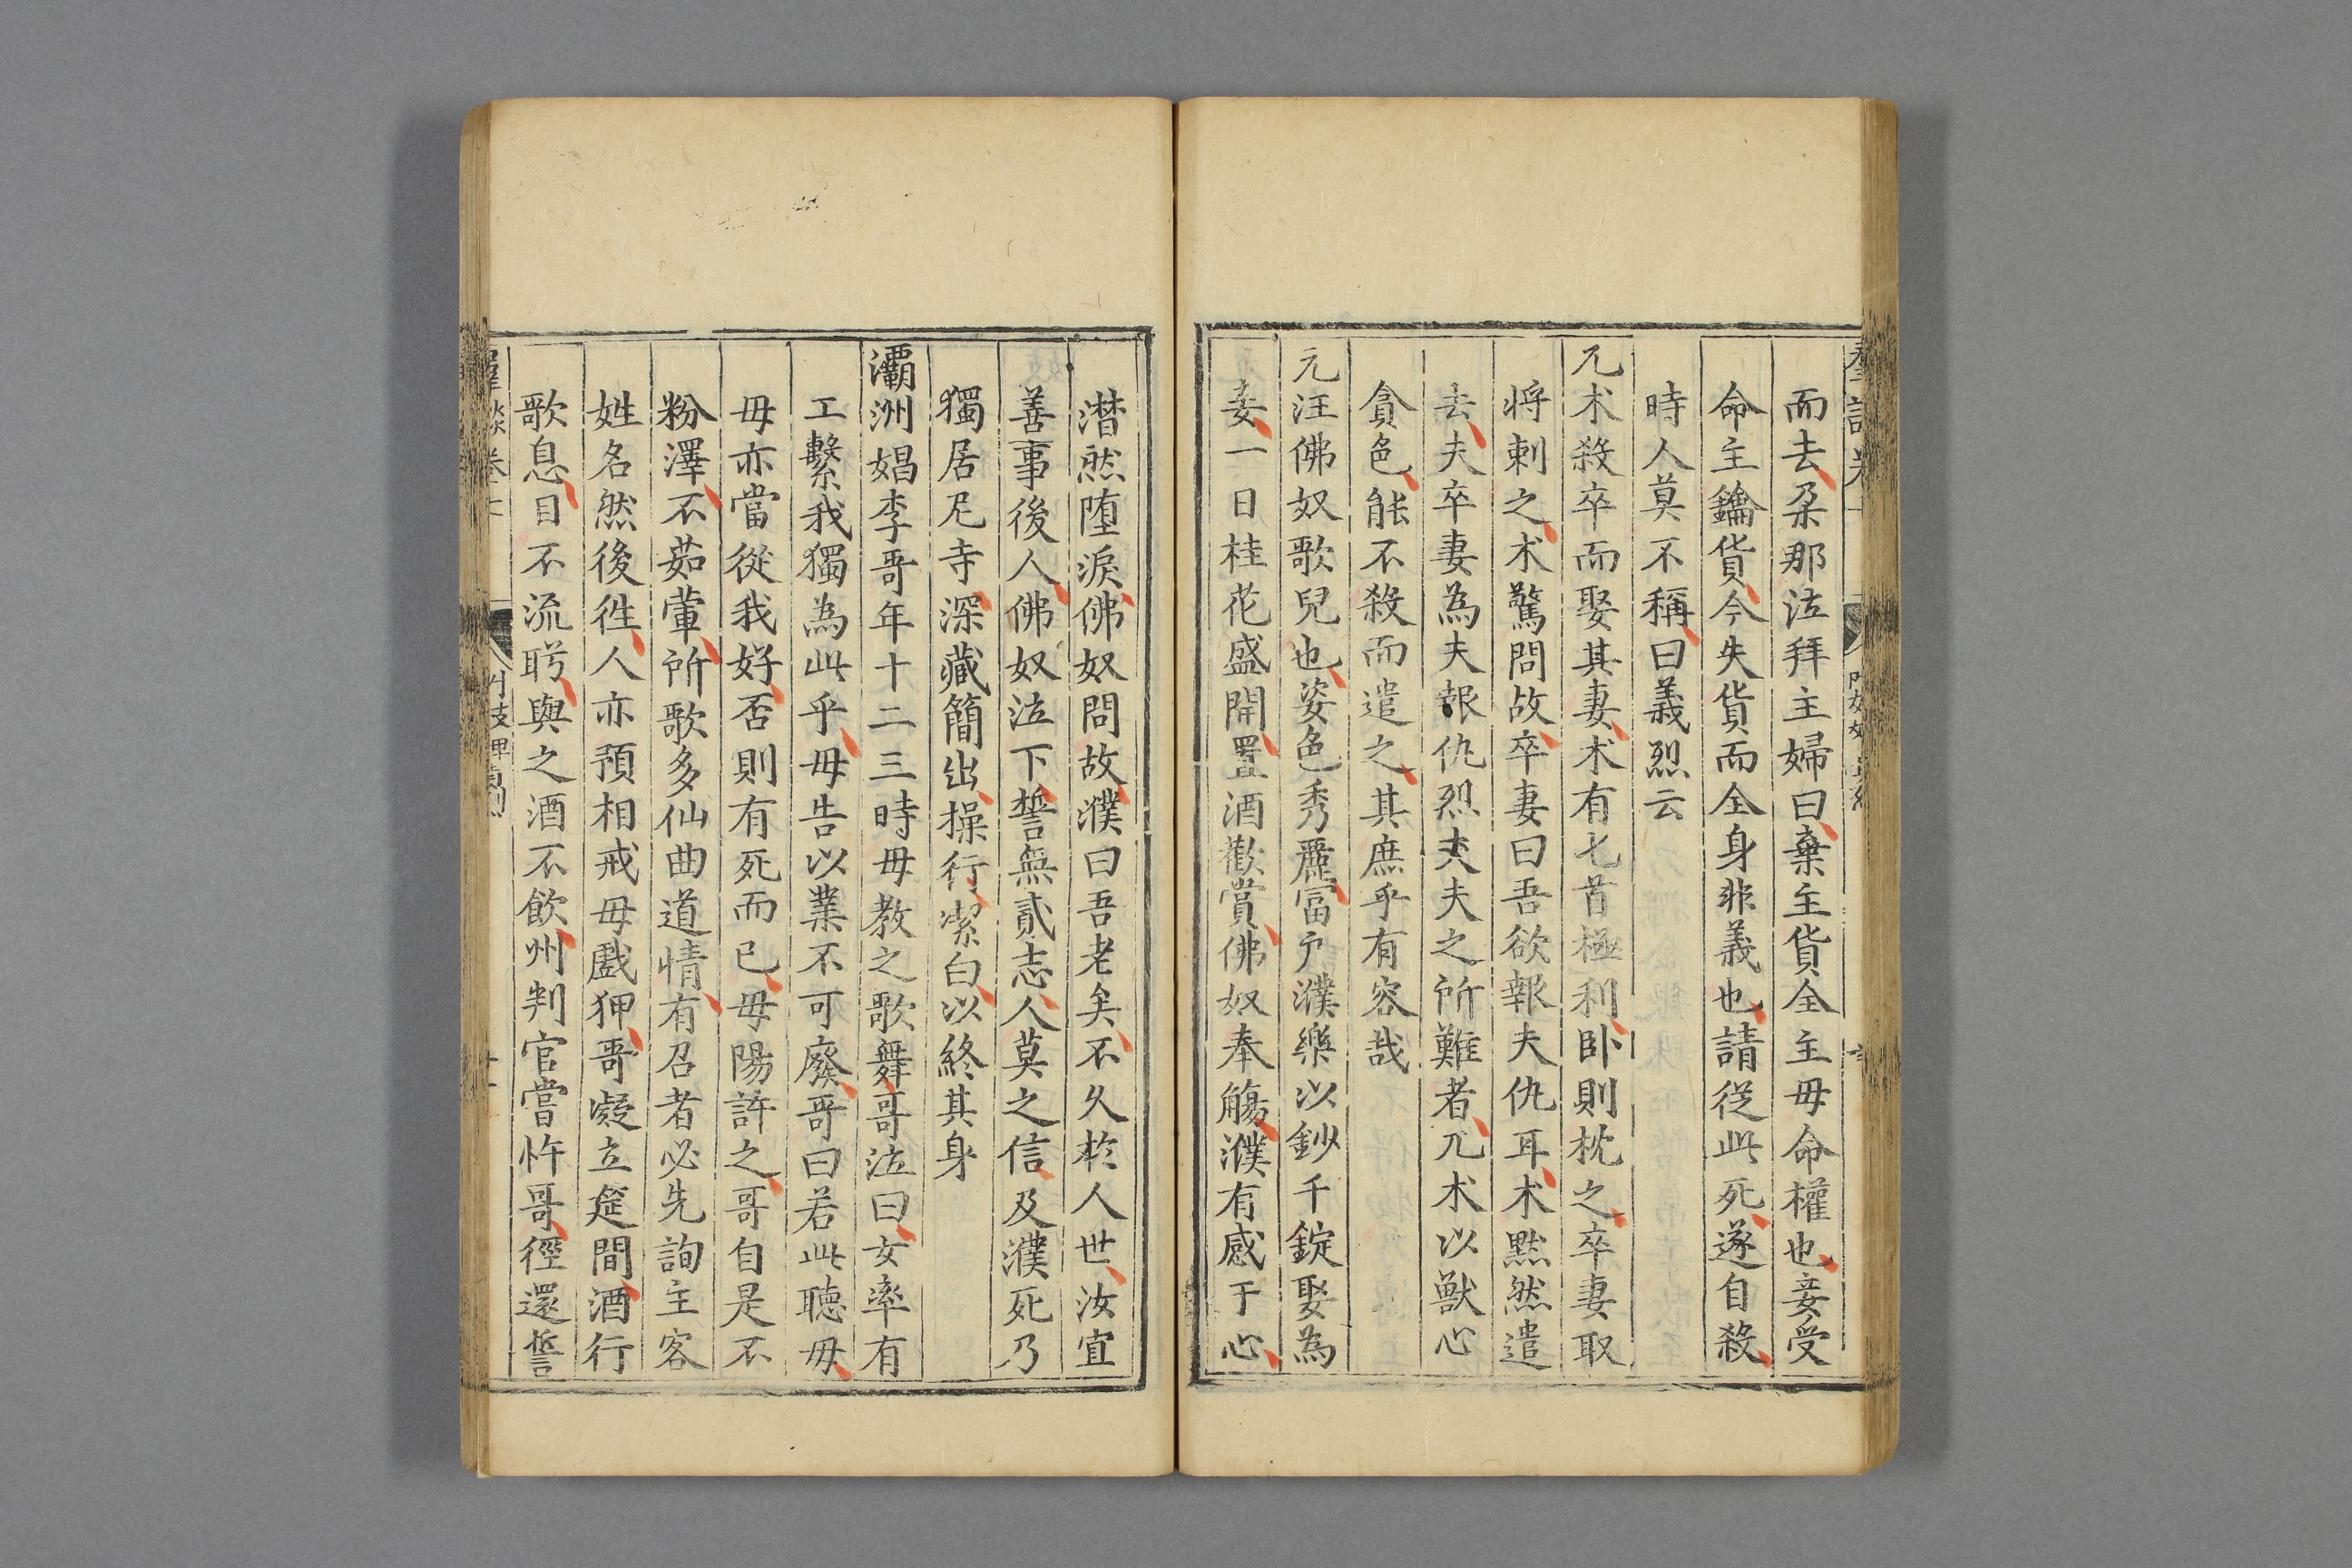 而去朶那泣拜主婦曰棄主貨全主毋命權也妾受
命主鑰貨今失貨而全身非義也請從此死遂自殺
時人莫不稱曰義烈云
兀朮殺卒而娶其妻朮有匕首極利卧則枕之卒妻取
将刺之朮驚問故卒妻曰吾欲報夫仇耳朮默然遣
去夫卒妻為夫報仇烈夫夫之所難者兀朮以獸心
貪色能不殺而遣之其庶乎有容哉
元汪佛奴歌兒也姿色秀麗冨戶濮樂以鈔千錠娶為
妾一日桂花盛開置酒歡賞佛奴奉觴濮有感于心
潸然堕淚佛奴問故濮曰吾老矣不久於人世汝宜
善事後人佛奴泣下誓無貳志人莫之信及濮死乃
獨居尼寺深藏簡出操行㓗白以終其身
灞洲娼李哥年十二三時毋教之歌舞哥泣曰女率有
工繫我獨為此乎毋告以業不可廢哥曰若此聽毋
毋亦當從我好否則有死而已毋陽許之哥自是不
粉澤不茹葷所歌多仙曲道情有召者必先詢主客
姓名然後徃人亦預相戒毋戲狎哥凝立筵間酒行
歌息目不流眄與之酒不飲州判官嘗忤哥徑還誓